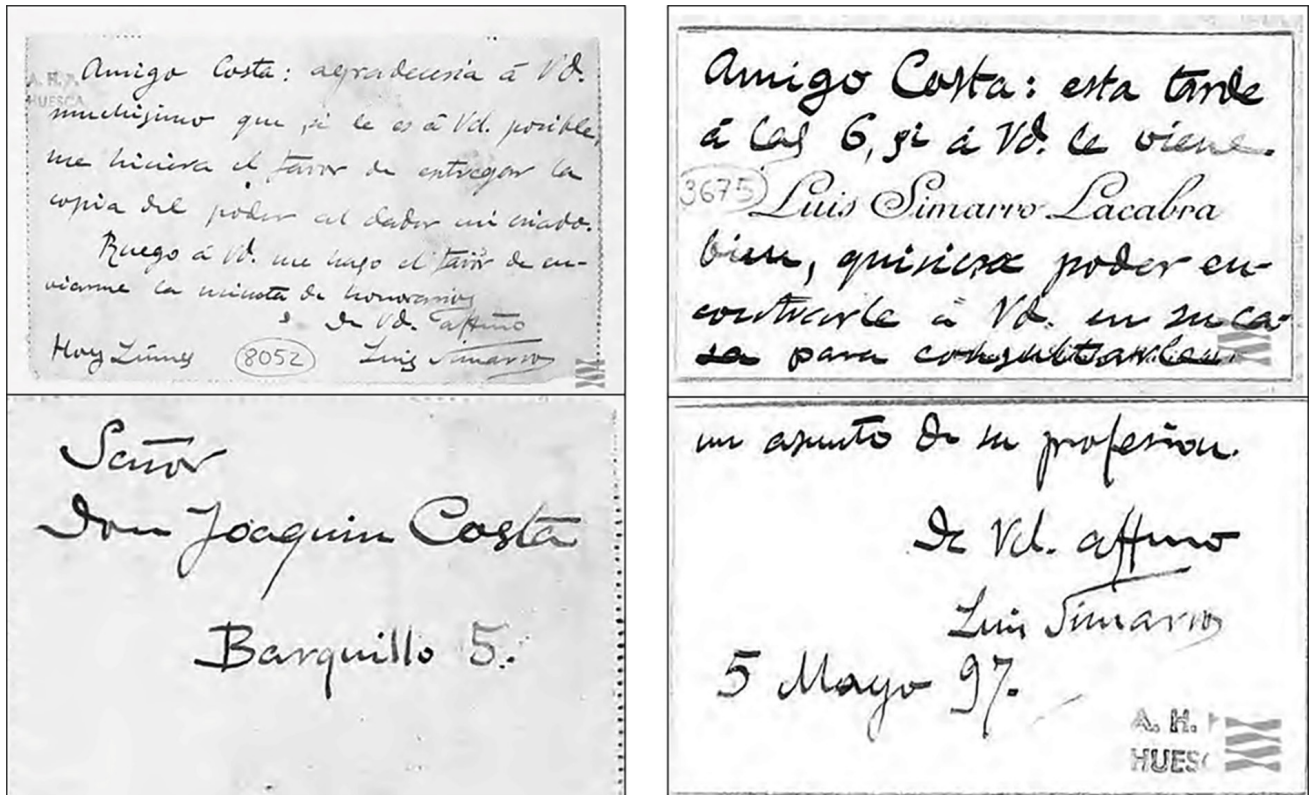 Amigo Costa: agradeceria á Vd.
A. H. P.
HUESCA
muchisimo que, si le es á Vd. posible,
me hiciera el favor de entregar la
copia del poder al dador mi criado.
Ruego á Vd. me haga el favor de en-
viarme la minuta de honorarios
de Vd. affmo
Hoy Lúnes
8052
Luis Simarro
Señor
Don Joaquin Costa
Barquillo 5.
Amigo Costa: esta tarde
á las 6, si á Vd. le viene
3675
Luis Simarro Lacabra
bien, quisiera poder en-
contrarle á Vd. en su ca-
sa para consultarle
un asunto de su profesion.
De Vd. affmo
Luis Simarro
5 Mayo 97.
A. H.
HUESC